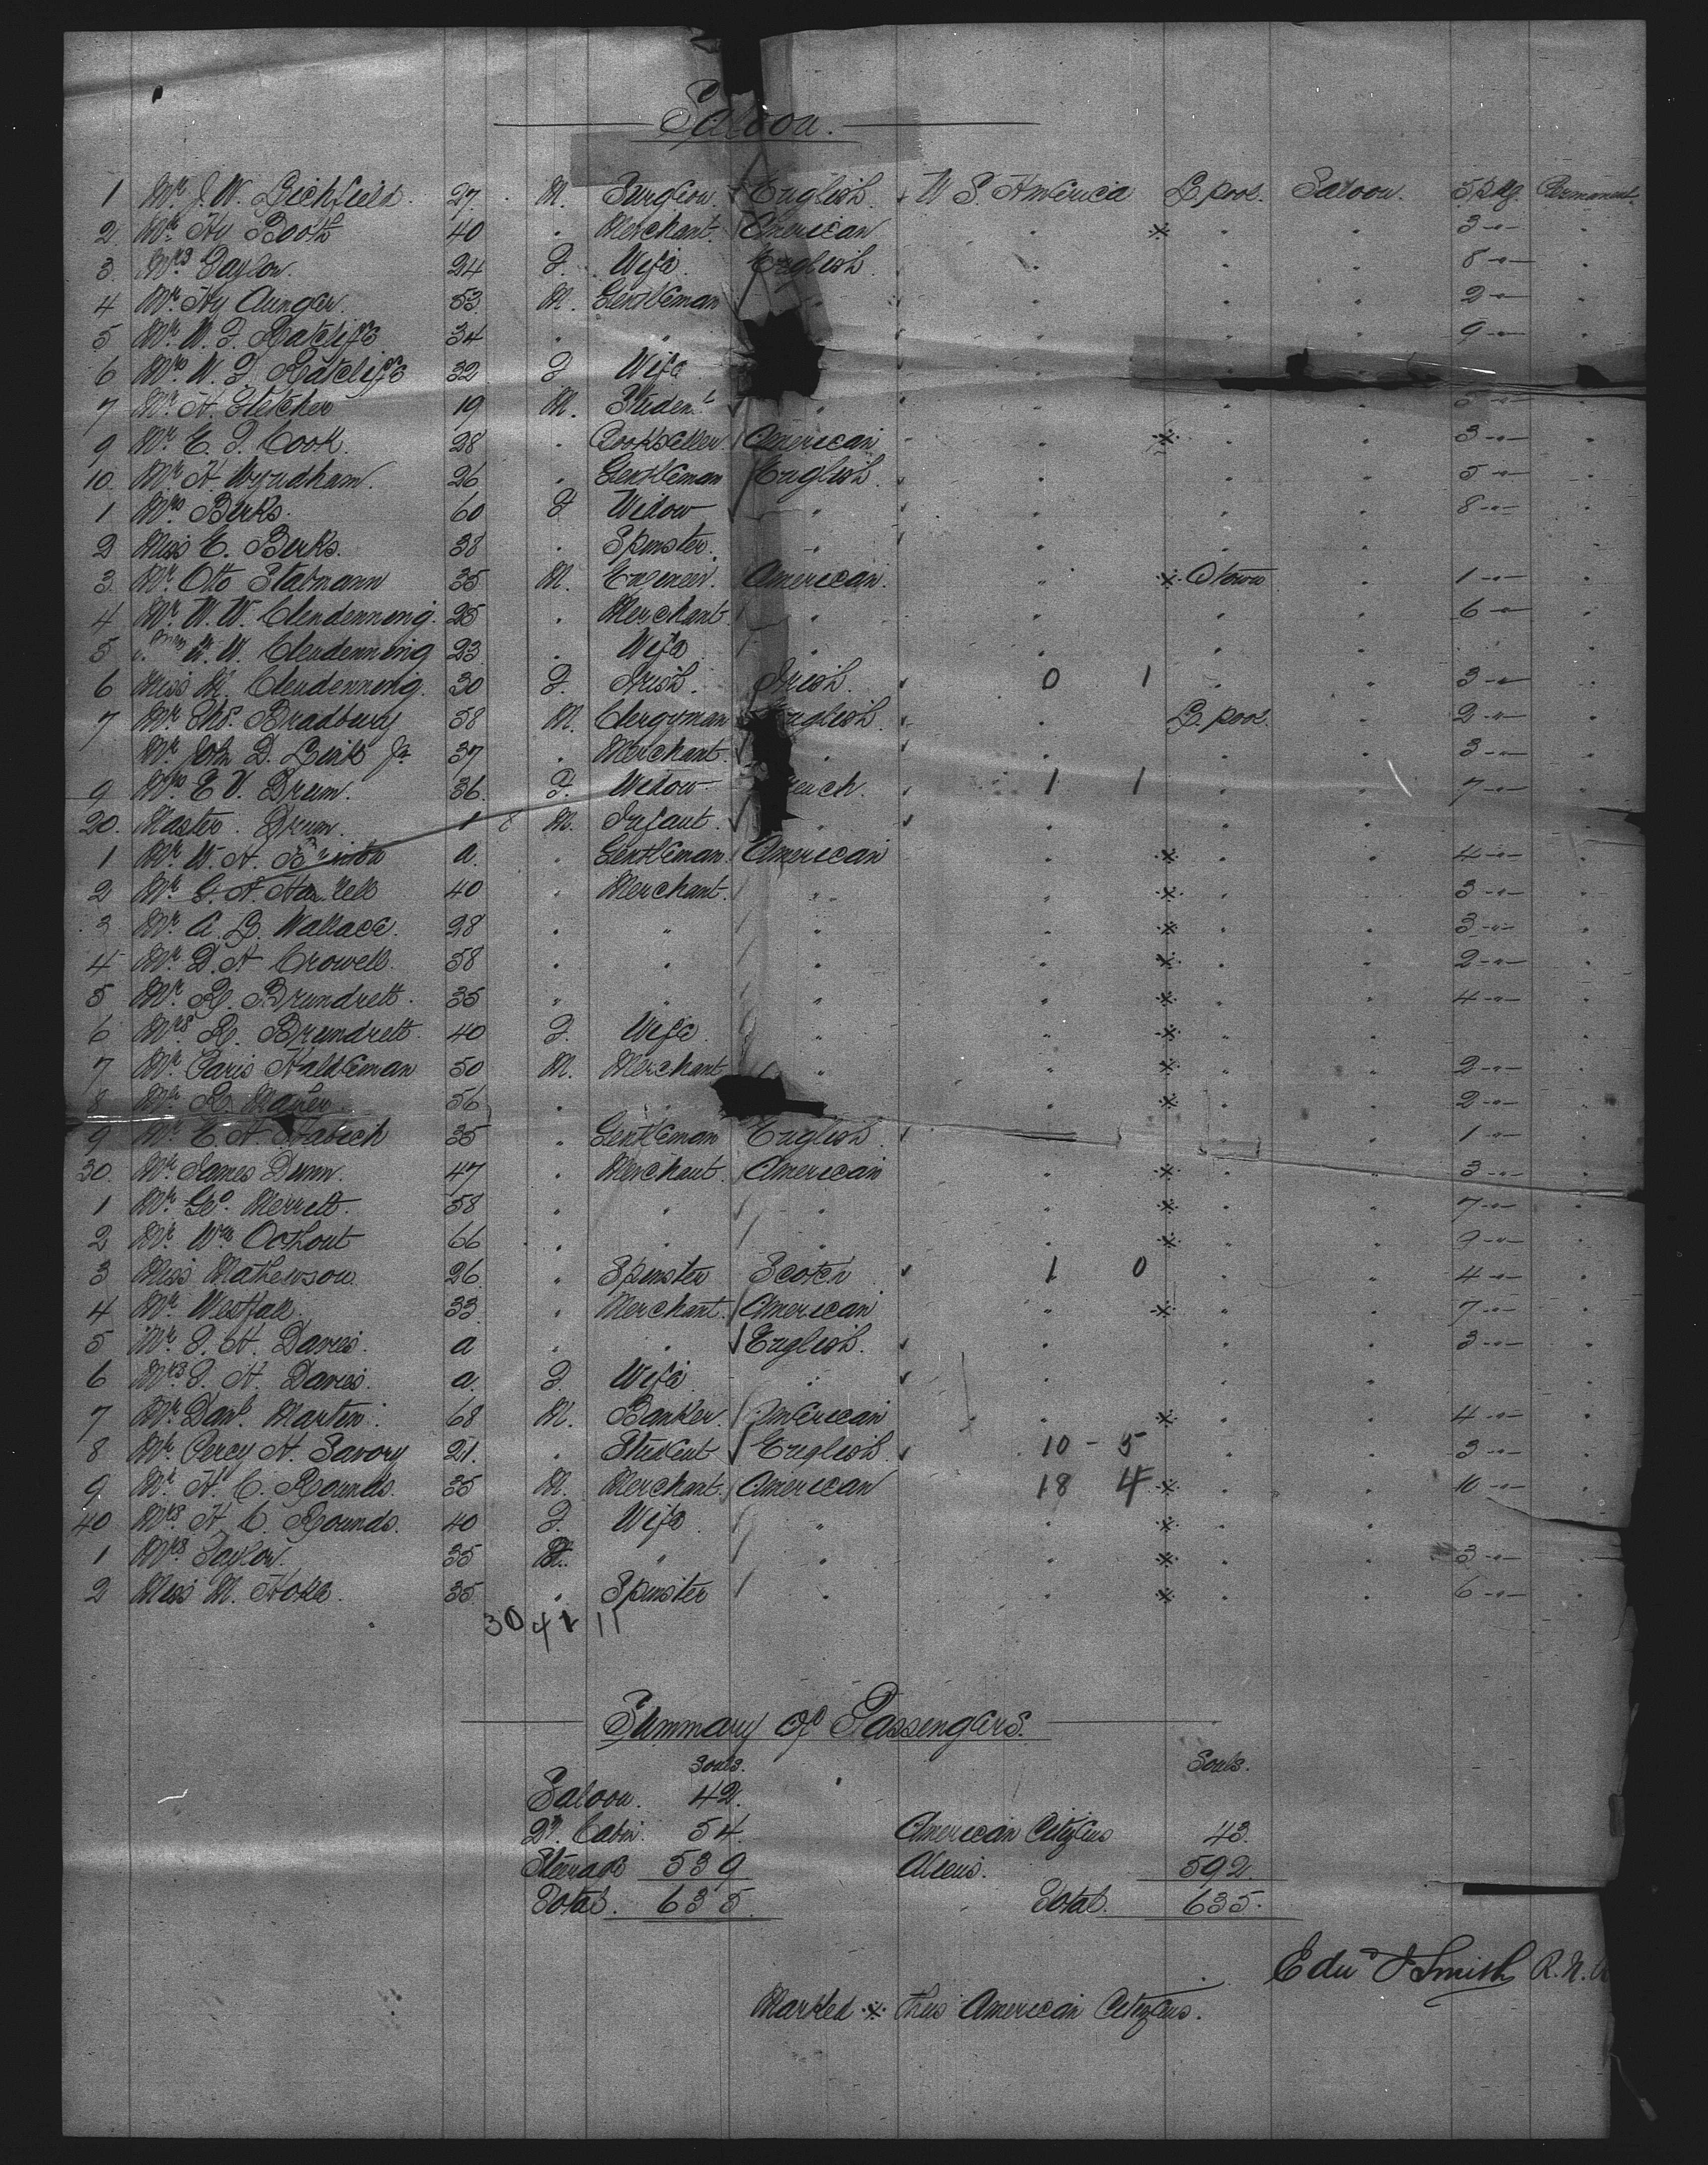 Saloon.
1 Mr J. W. Lichfield. 27. M. Surgeon. English. U S. America L.pool. Saloon. 5 pkg. Permanent.
2. Mr Hy Booth 40 " Merchant. American " ※ " " 3 -"- "
3. Mrs Taylor. 24 F. Wife. English. " " " 8 -"- "
4 Mr Hy Aunger. 53. M. Gentleman " " " " 2 -"- "
5 Mr W. F. Ratcliffe 34 " " " " " 9 -"- "
6 Mrs W. F. Ratcliffe 32 F Wife " " "
7 Mr H. Fletcher 19 M. Student " " " " "
9 Mr E. F. Cook. 28 " Bookseller American " ※ " " 3 -"- "
10. Mr H. Wyndham. 26 " Gentleman English. " " " 5 -"- "
1 Mrs Berks. 60 F Widow " " " " 8 -"- "
2 Miss E. Berks. 38 " Spinster. " " " " "
3. Mr Otto Stabmann 35 M. Engineer. American. " ※ Qtown " 1 -"- "
4 Mr W. W. Clendenning. 25 " Merchant " " " " 6 -"- "
5 Mrs W. W. Clendenning 23 " Wife " " " " " "
6 Miss M. Clendenning. 30 F. Irish. Irish. 0 1 " " 3 -"- "
7 Mr Thos. Bradbury 58 M. Clergyman English. " L.pool. " 2 -"- "
Mr John D. Link Jr 37 " Merchant. " " " " 3 -"- "
9 Mrs E V. Drum. 36. F. Widow 1 1 " " 7 -"- "
20. Master. Drum. 1 M. Infant. " " " " "
1 Mr W. H. a. " Gentleman. American ※ " " 4 -"- "
2 Mr G. H. 40 " Merchant. " " ※ " " 3 -"- "
3 Mr A. B. Wallace. 28 " " " " ※ " " 3 -"- "
4 Mr D. H Crowell. 58 " " " " ※ " " 2 -"- "
5 Mr R. Brundrett. 35 " " " " ※ " " 4 -"- "
6 Mrs R. Brundrett. 40 F. Wife. " " ※ " " "
7 Mr Paris Haldeman 50 M. Merchant " " ※ " " 2 -"- "
8 Mr R. 56 " " ※ " " 2 -"- "
9 Mr E. H. Habich 35 " Gentleman English. " " " 1 -"- "
30. Mr James Dunn. 47 " Merchant. American " ※ " " 3 -"- "
1 Mr Geo. Merrett. 58 " " " " ※ " " 7 -"- "
2 Mr Wm Oothout 66 " " " " ※ " " 9 -"- "
3 Miss Mathewson. 26 " Spinster Scotch 1 0 " " 4 -"- "
4 Mr Westfall. 33 " Merchant. American " ※ " " 7 -"- "
5 Mr S. H. Davies. a " " English. " " " 3 -"- "
6 Mrs S. H. Davies. a. F. Wife " " " " "
7 Mr Danl. Martin. 68 M. Banker. American " ※ " " 4 -"- "
8 Mr Percy H. Savory 21. " Student English. 10 - 5 " " 3 -"- "
9 Mr H. C. Rounds. 35 M. Merchant. American 18 4 ※ " " 10 -"- "
40 Mrs H. C. Rounds. 40 F. Wife " " ※ " " "
1 Mrs Taylor. 35 " " " ※ " " 3 -"- "
2 Miss M. Hoke. 35. " Spinster " " ※ " " 6 -"- "
30 41 11
Summary of Passengers.
Souls. Souls.
Saloon. 42.
2d. Cabin. 54. American Citizens 43.
Steerage 539 Aliens. 592.
Total. 635. Total. 635.
Edwd J Smith R.N.R
Marked ※ thus American Citizens.